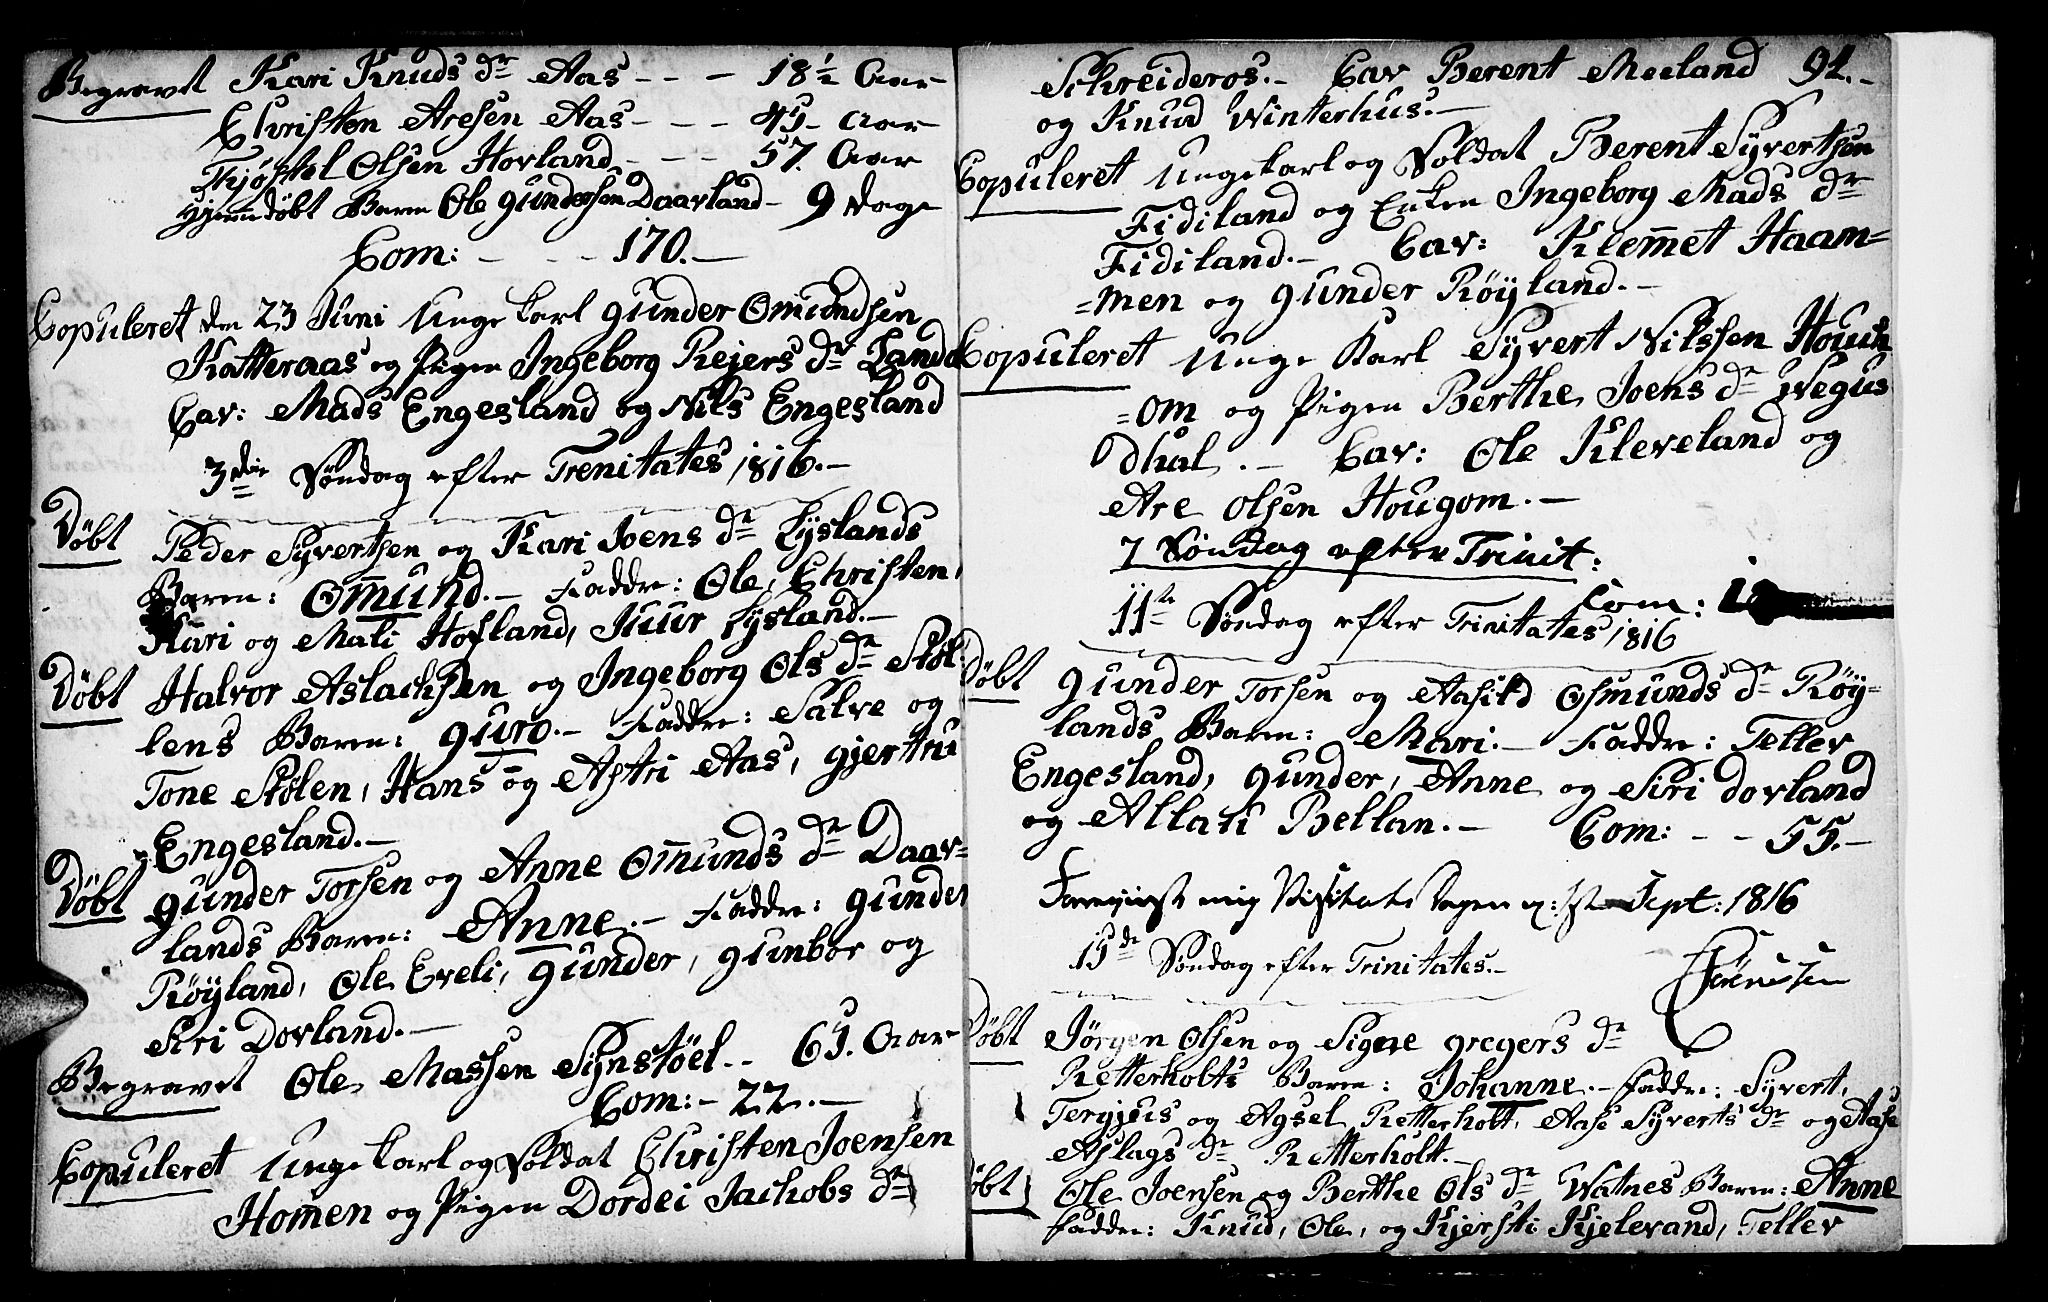 Begravet Kari Knuds dr Aas - - - 18½ Aar
Christen Aresen Aas - - - 45 - Aar
Tkjøstel Olsen Hovland - - - 57. Aar
Hjemedøbt Baren Ole Gundersen Daarland - 9 Dage
Com: - - - 170. -
Copuleret den 23 Juni Unge Karl Gunder Omundsen
Katteraas og Pigen Ingeborg Rejers dr Land
Cav: Mads Engesland og Nils Engesland
3die Søndag efter Trenitates 1816. -
Døbt Peder Syvertsen og Kari Joens dr Lyslands
Baren: Om̅und. - Faddre: Ole, Christen,
Kari og Mali Hofland, Juur Lysland. -
Døbt Halvor Aslachsen og Ingeborg Ols dr Støl
lens Baren: Guro. - Faddre: Salve og
Tone Stølen, Hans og Astri Aas, Gjertru
Engesland. -
Døbt Gunder Torsen og Anne Om̅unds dr Daar=
lands Baren: Anne. - Faddre: Gunder
Röÿland, Ole Eveli, Gunder, Gunbor og
Siri Dorland. -
Begravet Ole Massen Synstöel - - 65. Aar
Com: - 22. -
Copuleret Unge Karl og Soldat Christen Joensen
Hom̅en og Pigen Dordei Jachobs dr
Schreideros. - Cav Berent Meeland 91. -
og Knud Winterhus. -
Copuleret Ungekarl og Soldat Berent Syvertsen
Fidiland og Enken Ingeborg Mads dr
Fidiland. - Cav: Klem̅et Haam=
=men og Gunder Röÿland. -
Copuleret Unge Karl Syvert Nilssen Houg
=om og Pigen Berthe Joens dr Wegus
dhal. - Cav: Ole Kleveland og
Are Olsen Hougom. -
7 Söndag efter Trinit:
Com:
11te Søndag efter Trinitates 1816
Døbt Gunder Torsen og Aasild Osmunds dr Röÿ=
lands Baren: Mari. - Faddre: Tellev
Engesland, Gunder, Anne og Siri Dorland
og Allau Bellan. - Com: - - 55. -
Foreviist mig Visitats Dagen Sept: 1816
15de Søndag efter Trinitates. -
Døbt Jörgen Olsen og Signe Gregers dr
Retterholts Baren: Johanne. - Faddre: Syvert,
Tergjus og Agsel Retterholt, Aase Syverts dr og Aase
Aslags dr Retterholt. -
Døbt Ole Joensen og Berthe Ols dr Watnes Baren: Anne
Faddre: Knud, Ole, og Kjersti Kjelevand, Tellev